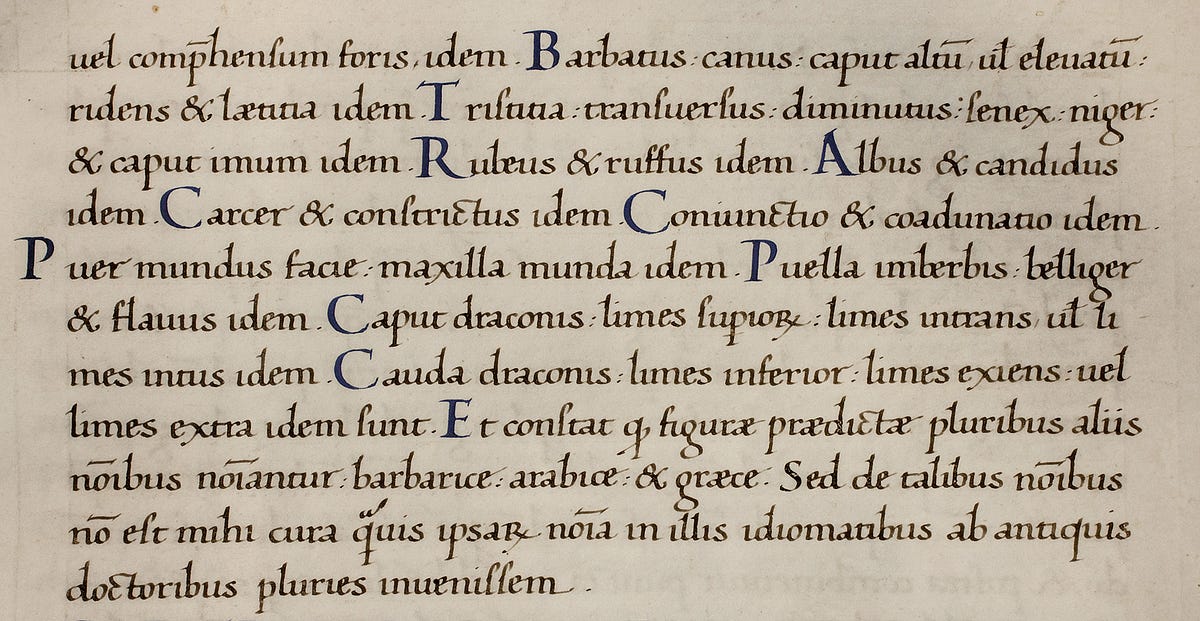 uel comp̄henſum foris, idem. Barbatus: canus: caput altū, ul̄ eleuatū:
ridens & lætitia idem. Triſtitia: tranſuerſus: diminutus: ſenex: niger:
& caput imum idem. Rubeus & ruffus idem. Albus & candidus
idem. Carcer & conſtrictus idem. Coniunctio & coadunatio idem.
Puer mundus facie: maxilla munda idem. Puella imberbis: belliger
& flauus idem. Caput draconis: limes ſuꝑioꝝ: limes intrans, ul̄ li
mes intus idem. Cauda draconis: limes inferior: limes exiens: uel
limes extra idem ſunt. Et conſtat ꝙ figuræ prædictæ pluribus aliis
nōibus noīantur: barbarice: arabice: & græce. Sed de talibus nōibus
nō eſt mihi cura q̃uis ipsaꝝ noīa in illis idiomatibus ab antiquis
doctoribus pluries inueniſſem.